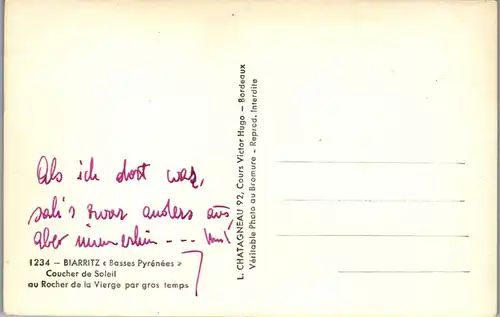 Als ich dort war,
sah's zwar anders aus,
aber immerhin ---
1234 – BIARRITZ « Basses Pyrénées »
Coucher de Soleil
au Rocher de la Vierge par gros temps
L. CHATAGNEAU 92, Cours Victor Hugo – Bordeaux
Véritable Photo au Bromure – Reprod. Interdite